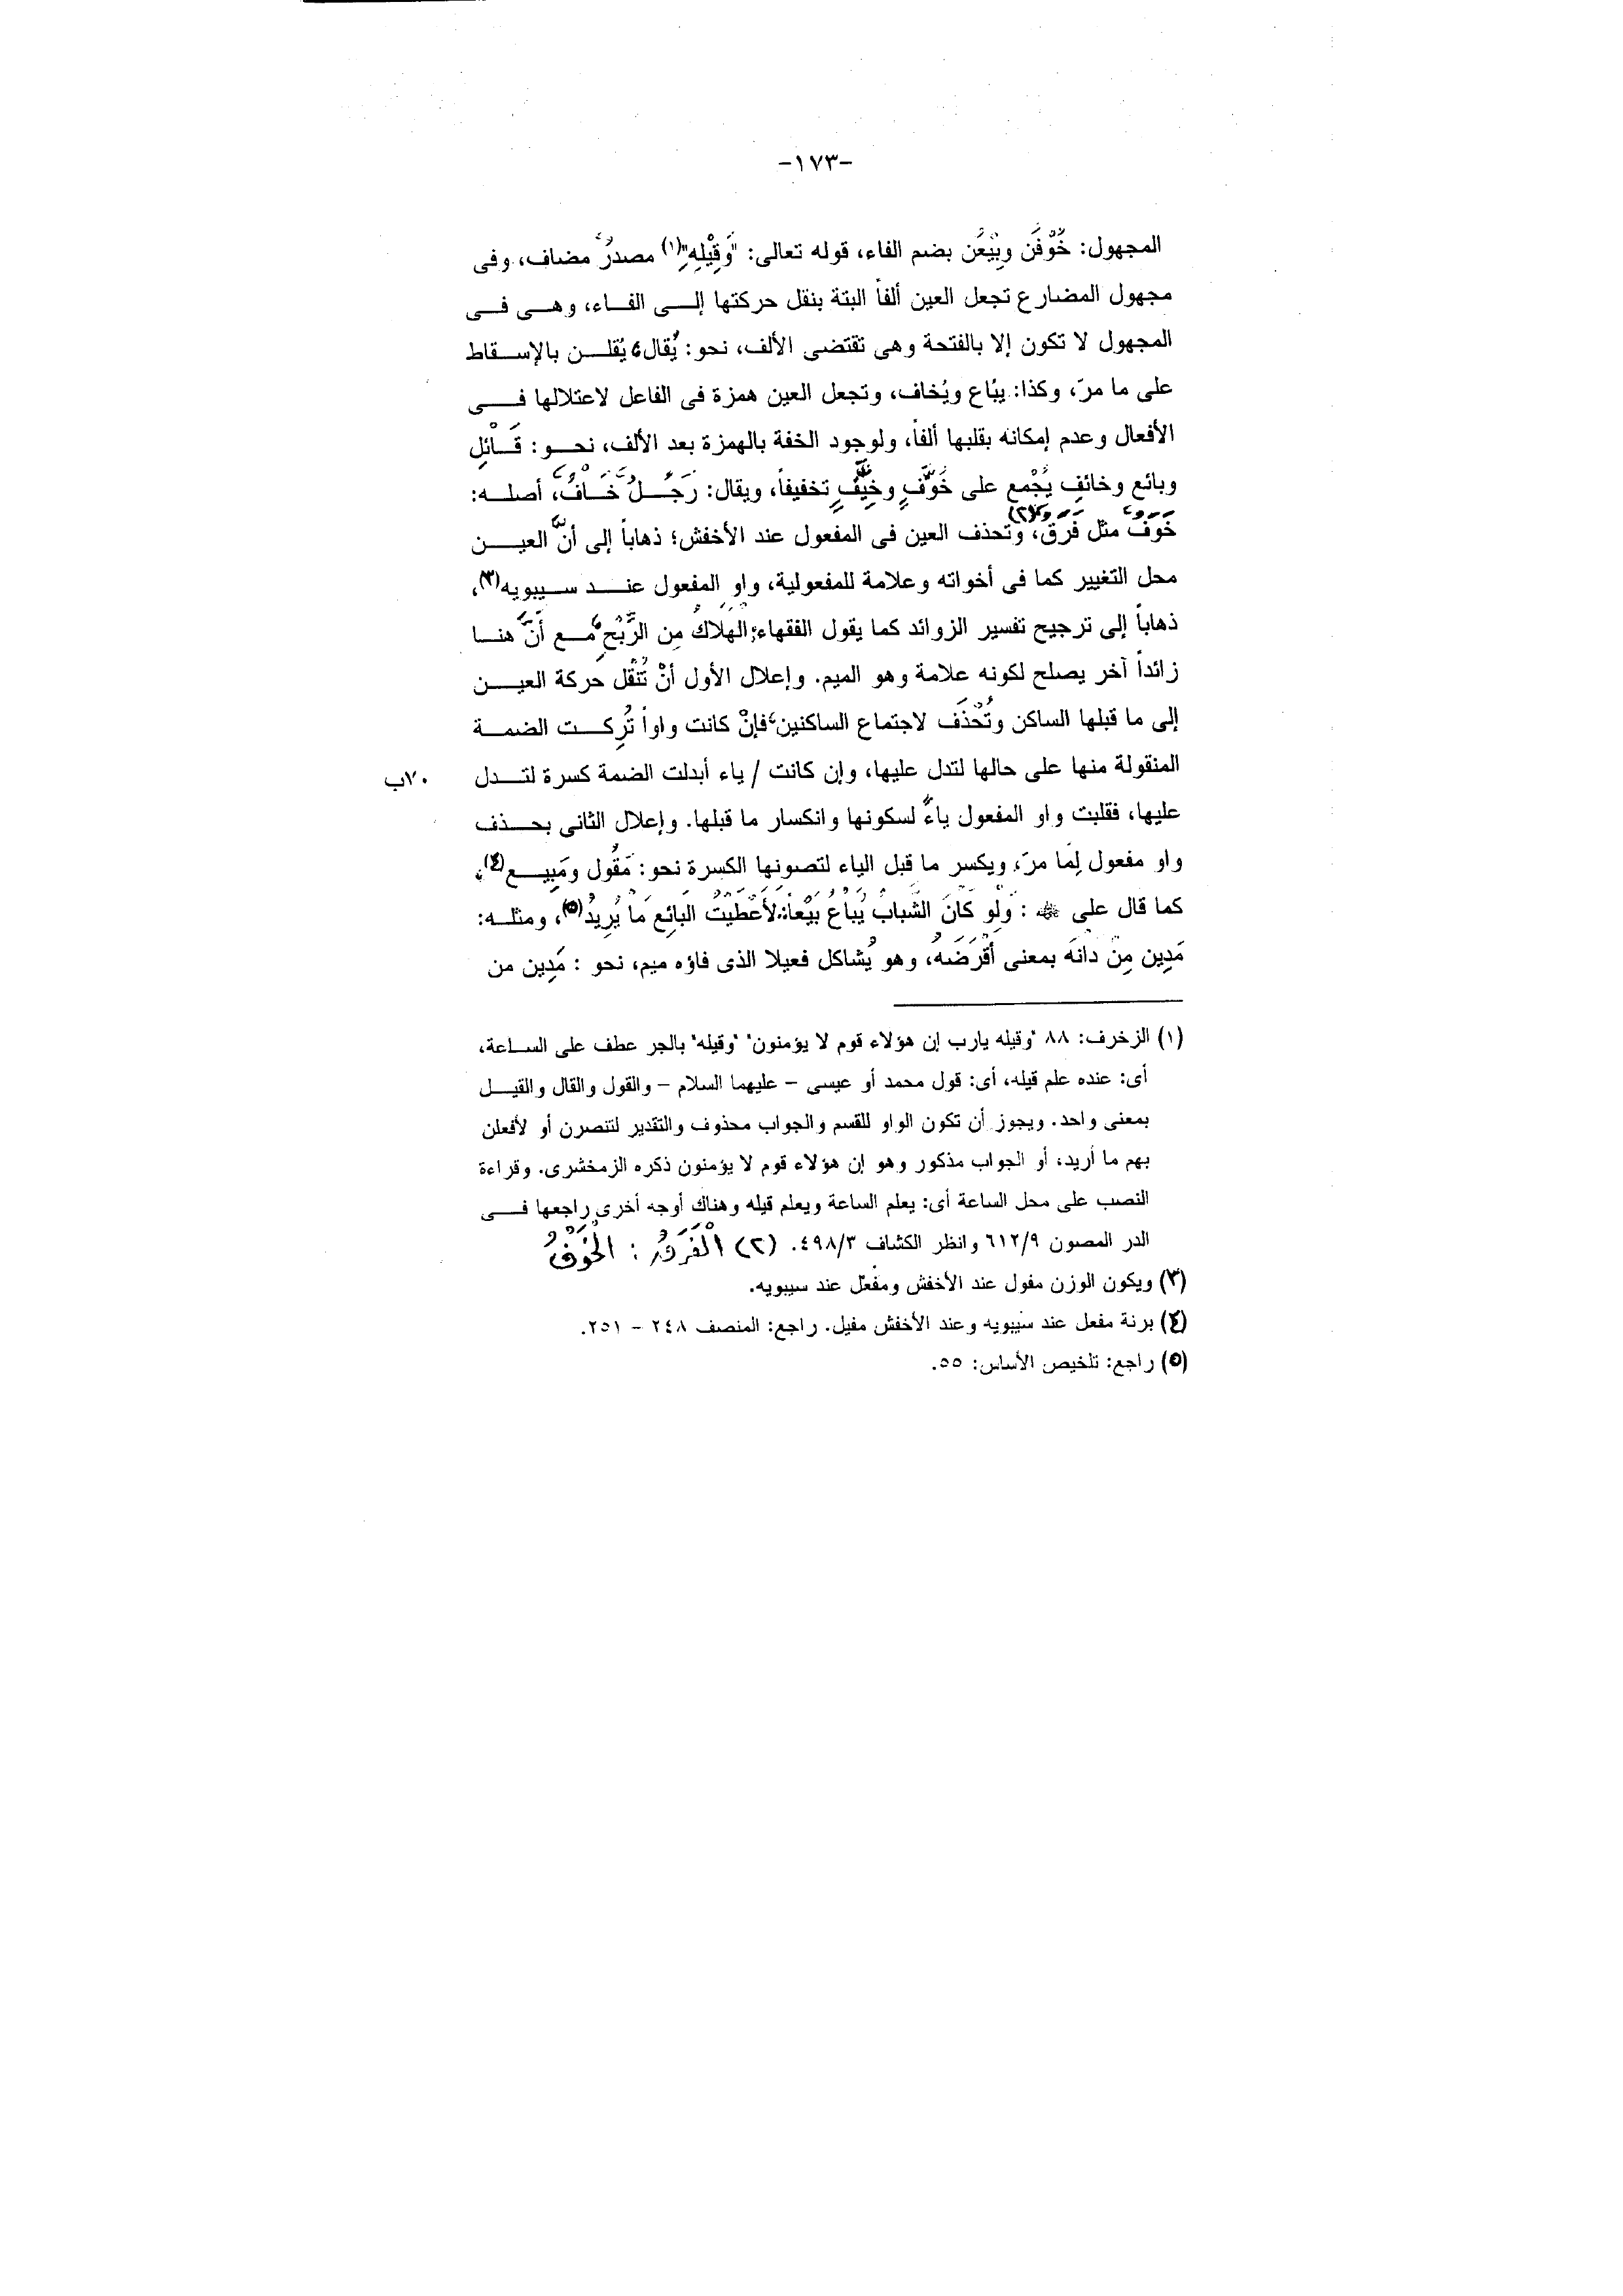 -١٧٣-
المجهول: خُوْفَن وبِيْعَن بضم الفاء، قوله تعالى: "وَقِيْلِهِ"(١) مصدرٌ مضاف، وفى
مجهول المضارع تجعل العين ألفاً البتة بنقل حركتها إلى الفاء، وهى فى
المجهول لا تكون إلا بالفتحة وهى تقتضى الألف، نحو: يُقال، يُقلن بالإسقاط
على ما مرّ، وكذا: يبُاع ويُخاف، وتجعل العين همزة فى الفاعل لاعتلالها فى
الأفعال وعدم إمكانه بقلبها ألفاً، ولوجود الخفة بالهمزة بعد الألف، نحو: قَائْلِ
وبائع وخائفِ يُجْمع على خَوَّفٍ وخِيَّفٍ تخفيفاً، ويقال: رَجُلٌ خَافٌ، أصله:
خَوَفٌ مثل فَرَقٌ(٢)، وتحذف العين فى المفعول عند الأخفش؛ ذهاباً إلى أنَّ العين
محل التغيير كما فى أخواته وعلامة للمفعولية، واو المفعول عند سيبويه(٣)،
ذهاباً إلى ترجيح تفسير الزوائد كما يقول الفقهاء: الهلاكُ مِن الرَّبْحِ، مع أنَّ هنا
زائداً آخر يصلح لكونه علامة وهو الميم. وإعلال الأول أنْ تُنْقَل حركة العين
إلى ما قبلها الساكن وتُحْذَف لاجتماع الساكنين، فإنْ كانت واواً تُرِكت الضمة
المنقولة منها على حالها لتدل عليها، وإن كانت / ياء أبدلت الضمة كسرة لتدل
٧٠ب
عليها، فقلبت واو المفعول ياءً لسكونها وانكسار ما قبلها. وإعلال الثانى بحذف
واو مفعول لِمَا مرّ، ويكسر ما قبل الياء لتصونها الكسرة نحو: مَقُول ومَبِيع(٤)،
كما قال على ﷺ : وَلَو كَانَ الشَّبابُ يُبَاعُ بَيْعاً: لأَعْطَيْتُ البَائِع مَا يُرِيدُ(٥)، ومثله:
مَدِين مِنْ دَانَه بمعنى أقْرَضَهُ، وهو يُشاكل فعيلا الذى فاؤه ميم، نحو : مَدِين من
(١) الزخرف: ٨٨ "وقيله يارب إن هؤلاء قوم لا يؤمنون" "وقيله" بالجر عطف على الساعة،
أى: عنده علم قيله، أى: قول محمد أو عيسى – عليهما السلام – والقول والقال والقيل
بمعنى واحد. ويجوز أن تكون الواو للقسم والجواب محذوف والتقدير لتنصرن أو لأفعلن
بهم ما أريد، أو الجواب مذكور وهو إن هؤلاء قوم لا يؤمنون ذكره الزمخشرى. وقراءة
النصب على محل الساعة أى: يعلم الساعة ويعلم قيله وهناك أوجه أخرى راجعها فى
الدر المصون ٦١٢/٩ وانظر الكشاف ٤٩٨/٣. (٢) الْفَرَقُ : الخَوْفُ
(٣) ويكون الوزن مفول عند الأخفش ومفعُل عند سيبويه.
(٤) برنة مفعل عند سيبويه وعند الأخفش مفيل. راجع: المنصف ٢٤٨ – ٢٥١.
(٥) راجع: تلخيص الأساس: ٥٥.